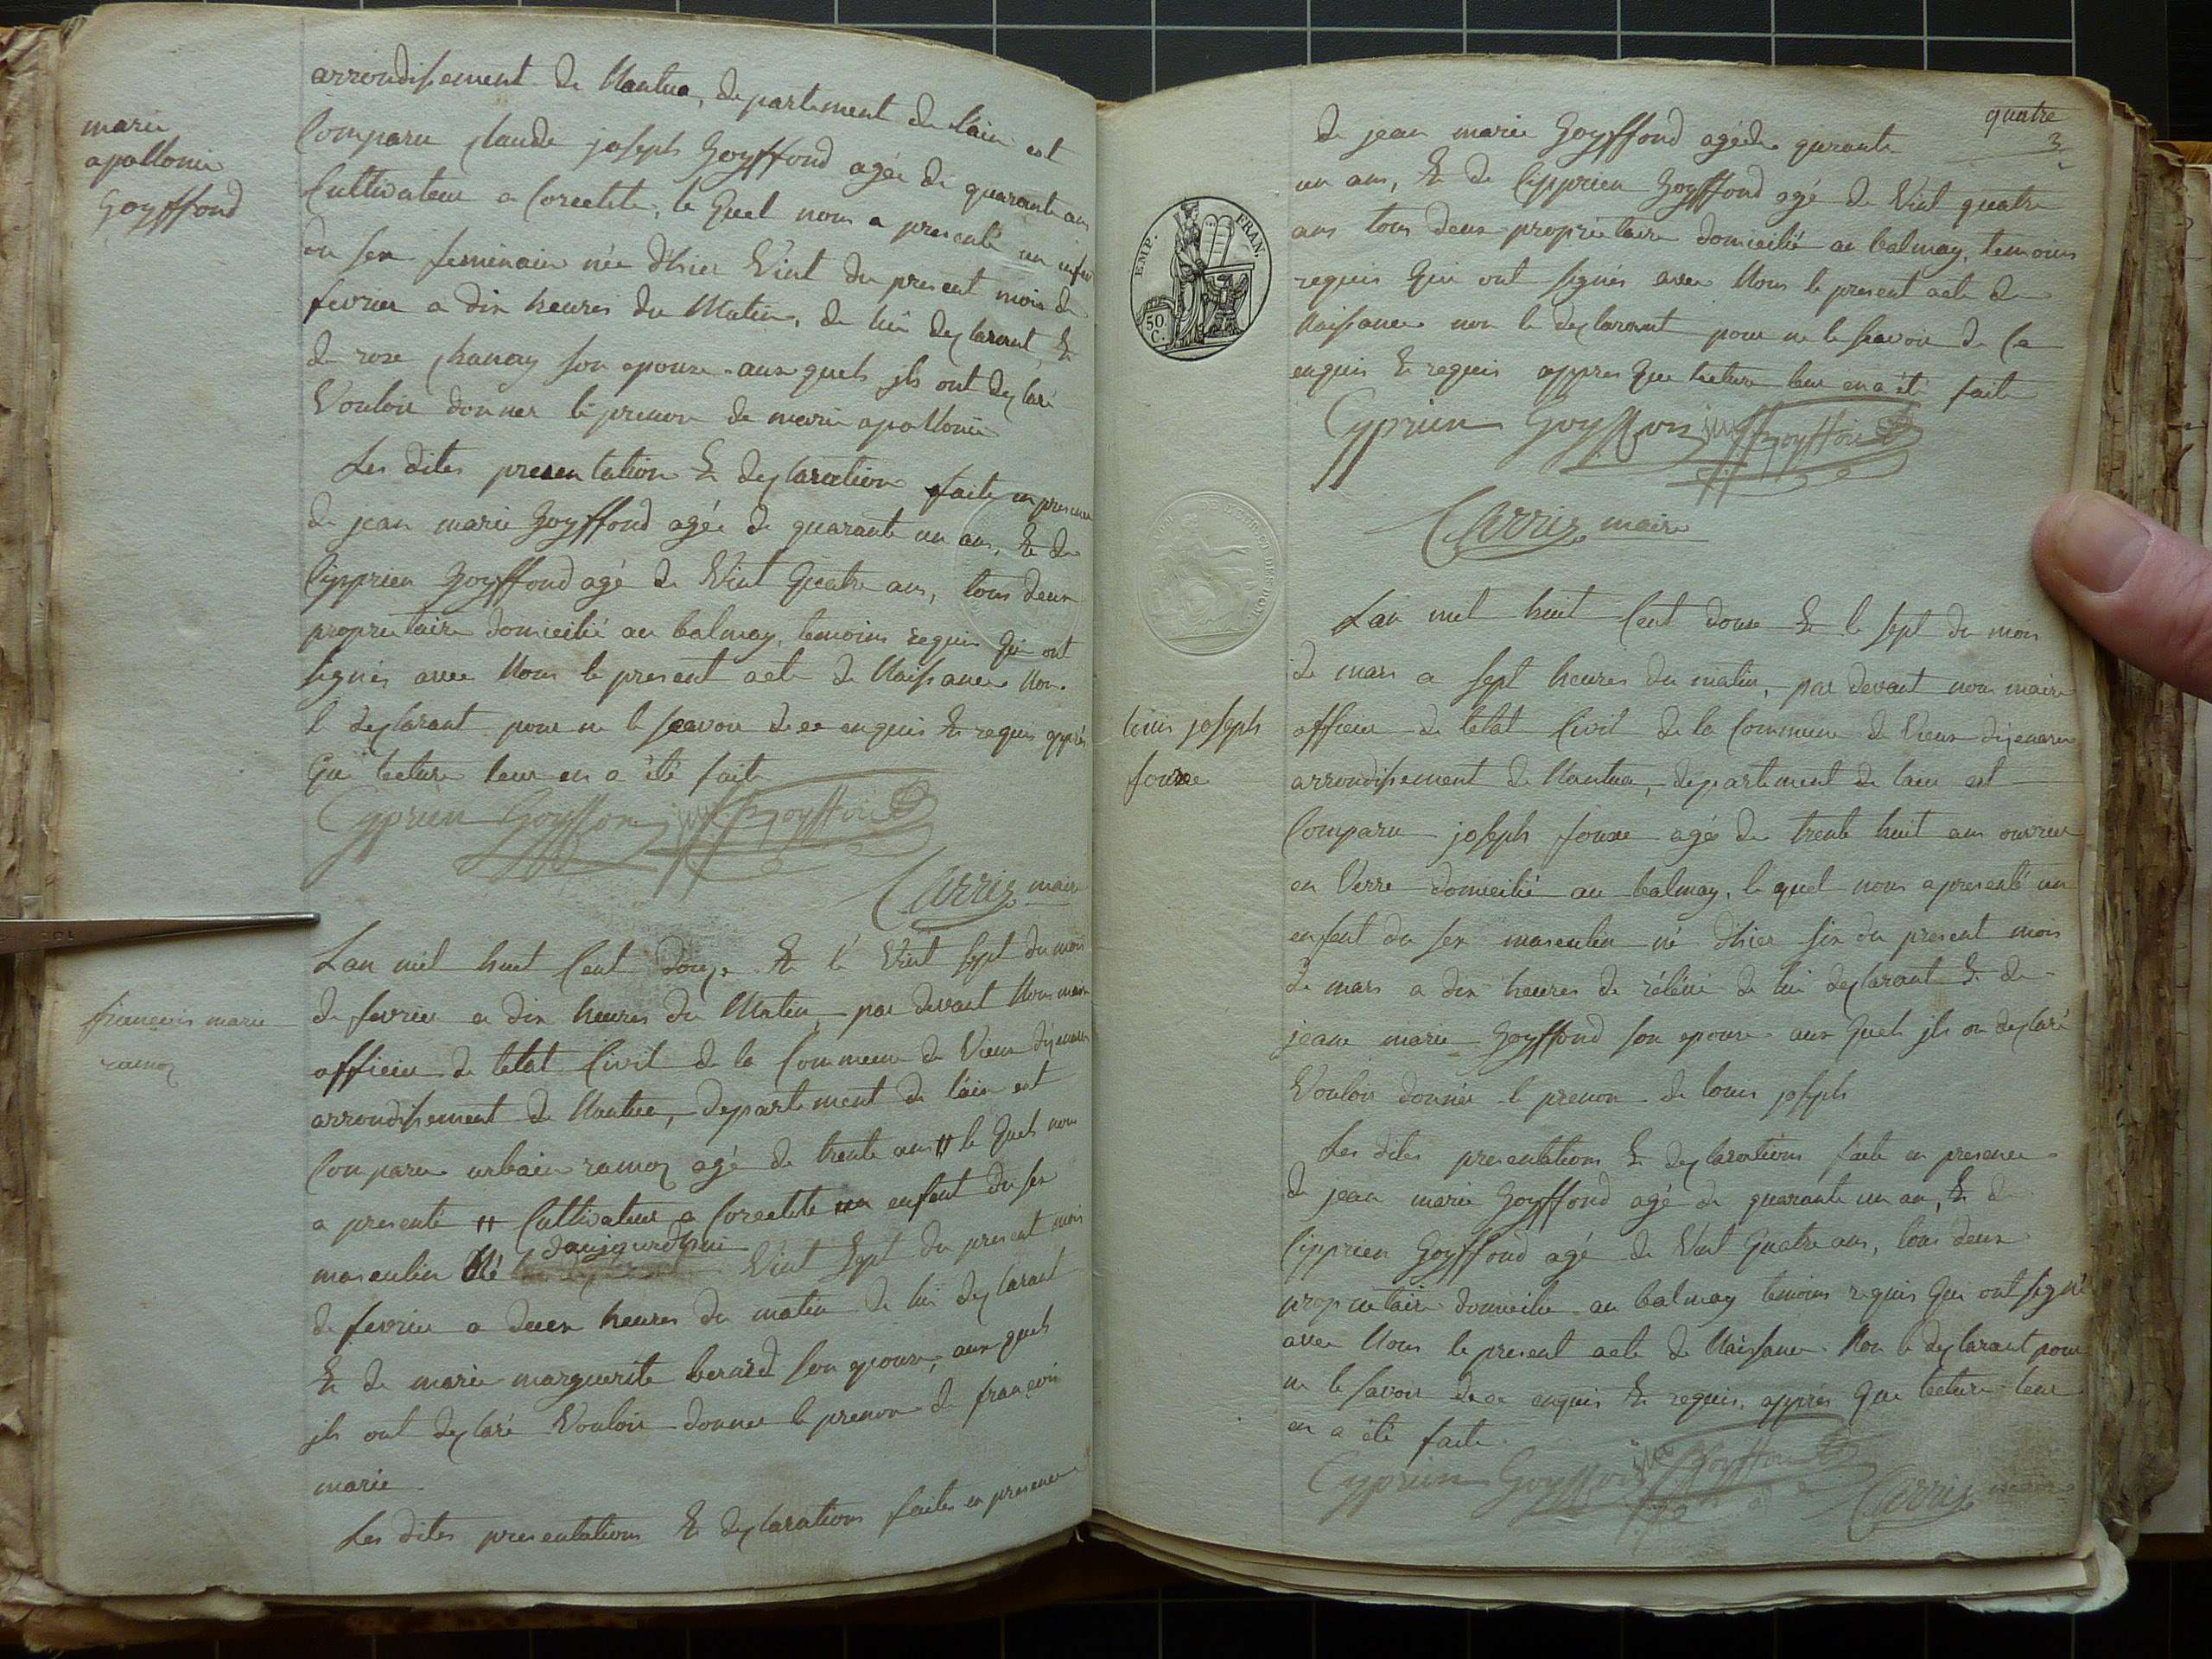 arrondissement de Nantua, departement de lain est
marie
apollonie
Goyffond
Comparu Claude joseph Goyffond agée de quarante ans
Cultivateur a Corcelete, le quel nous a presenté un enfant
du sex feminain née dhier Vint du present mois de
fevrier a dix heures du Matin, de lui desclarant, &
de rose chanay son epouse aux quels ils ont desclaré
Vouloir donner le prenom de marie apollonie
Les dites presentation & desclaration faite en presence
de jean marie Goyffond agée de quarante un ans, & de
Cipprien Goyffond agé de Vint Quatre ans, tous deux
proprietaire domicilié au balmay, temoins requis Qui ont
signés avec Nous le present acte de Naissance Non
l desclarant pour ne le scavoir de ce enquis & requis apprés
Que lecture leur en a été faite
Cyprien Goyffon jm Goyffon
Carrier maire
Lan mil huit Cent douze & le Vint sept du mois
françois marie
ramoz
de fevrier a dix heures du Matin, par devant Nous maire
officier de letat Civil de la Commune de Vieux dizenave
arrondissement de Nantua, departement de lain est
Comparu urbain ramoz agé de trente ans # le Quel nous
a presenté # Cultivateur a Corcelete un enfant du sex
masculin Né daujourdhui Vint Sept du present mois
de fevrier a deux heures du matin de lui desclarant
& de marie marguerite berard son epouse, aux quels
ils ont desclaré Vouloir donner le prenom de françois
marie
Les dites presentations & desclarations faites en presence
quatre
3
de jean marie Goyffond agé de quarante
un ans, & de Cipprien Goyffond agé de Vint quatre
ans tous deux proprietaire domicilié au balmay, temoins
requis Qui ont signés avec Nous le present acte de
Naissance non le desclarant pour ne le scavoir de Ce
enquis & requis appres Que lecture leur en a été faite
EMP. FRAN.
50 C.
Cyprien Goyffon jm Goyffon
Carrier maire
Lan mil huit Cent douze & le sept du mois
de mars a sept heures du matin, par devant nous maire
louis joseph
fouxe
officier de letat Civil de la Commune de Vieux dizenave
arrondissement de Nantua, departement de lain est
Comparu joseph fouxe agé de trente huit ans ouvrier
en Verre domicilié au balmay, le quel nous a presenté un
enfent du sex masculin né dhier six du present mois
de mars a dix heures de rélévé de lui desclarant & de
jeane marie Goyffond son epouse aux Quels ils on desclaré
Vouloir donner l prenom de louis joseph
Les dites presentations & desclarations faite en presence
de jean marie Goyffond agé de quarante un an, & de
Cipprien Goyffond agé de Vint Quatre ans, tous deux
proprietaire domicilié au balmay temoins requis Qui ont signé
avec Nous le present acte de Naissance Non le desclarant pour
ne le savoir de ce enquis & requis, apprés Que lecture leur
en a été faite
Cyprien Goyffon jm Goyffon
Carrier maire